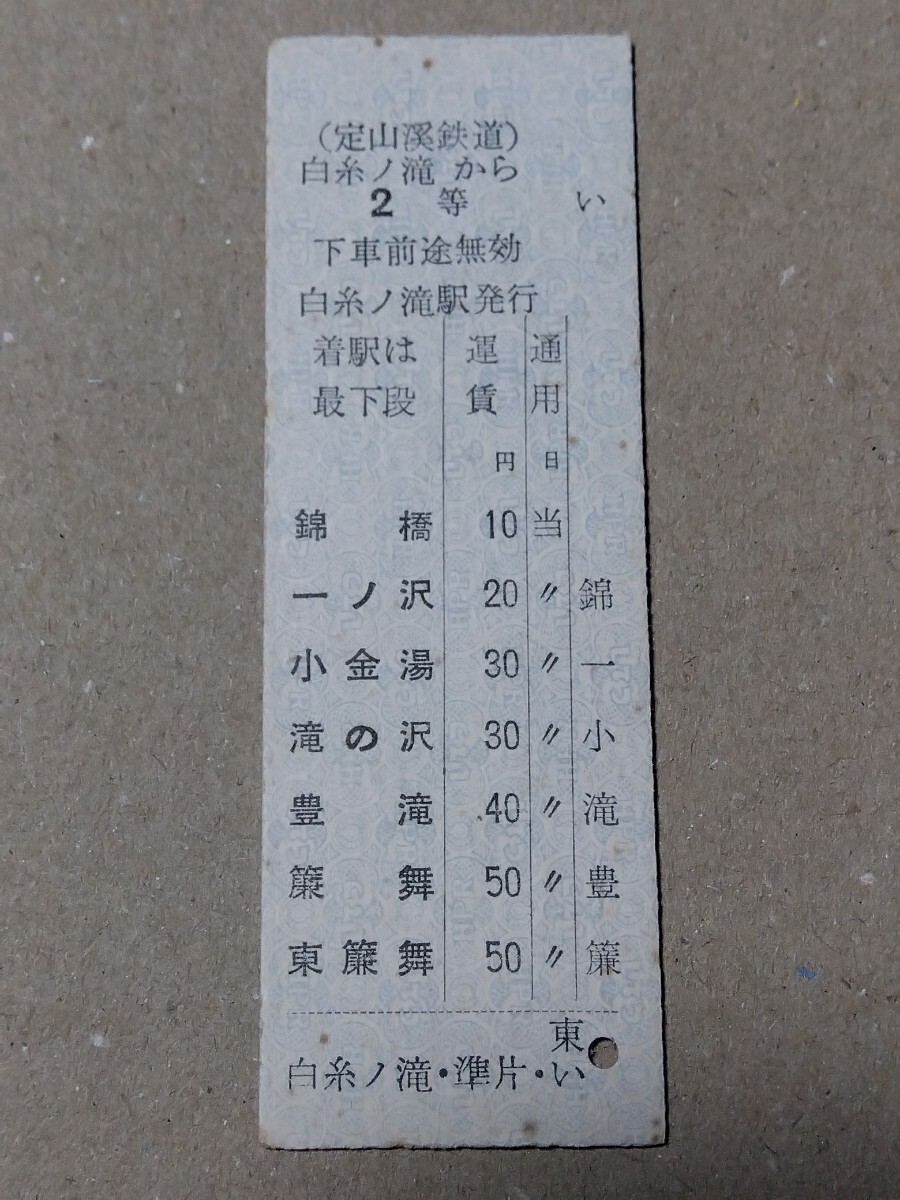 (定山溪鉄道)
白糸ノ滝 から
2 等 い
下車前途無効
白糸ノ滝駅発行
着駅は 運 通
最下段 賃 用
円 日
錦橋 10 当
一ノ沢 20 〃 錦
小金湯 30 〃 一
滝の沢 30 〃 小
豊滝 40 〃 滝
簾舞 50 〃 豊
東簾舞 50 〃 簾
東
白糸ノ滝・準片・い